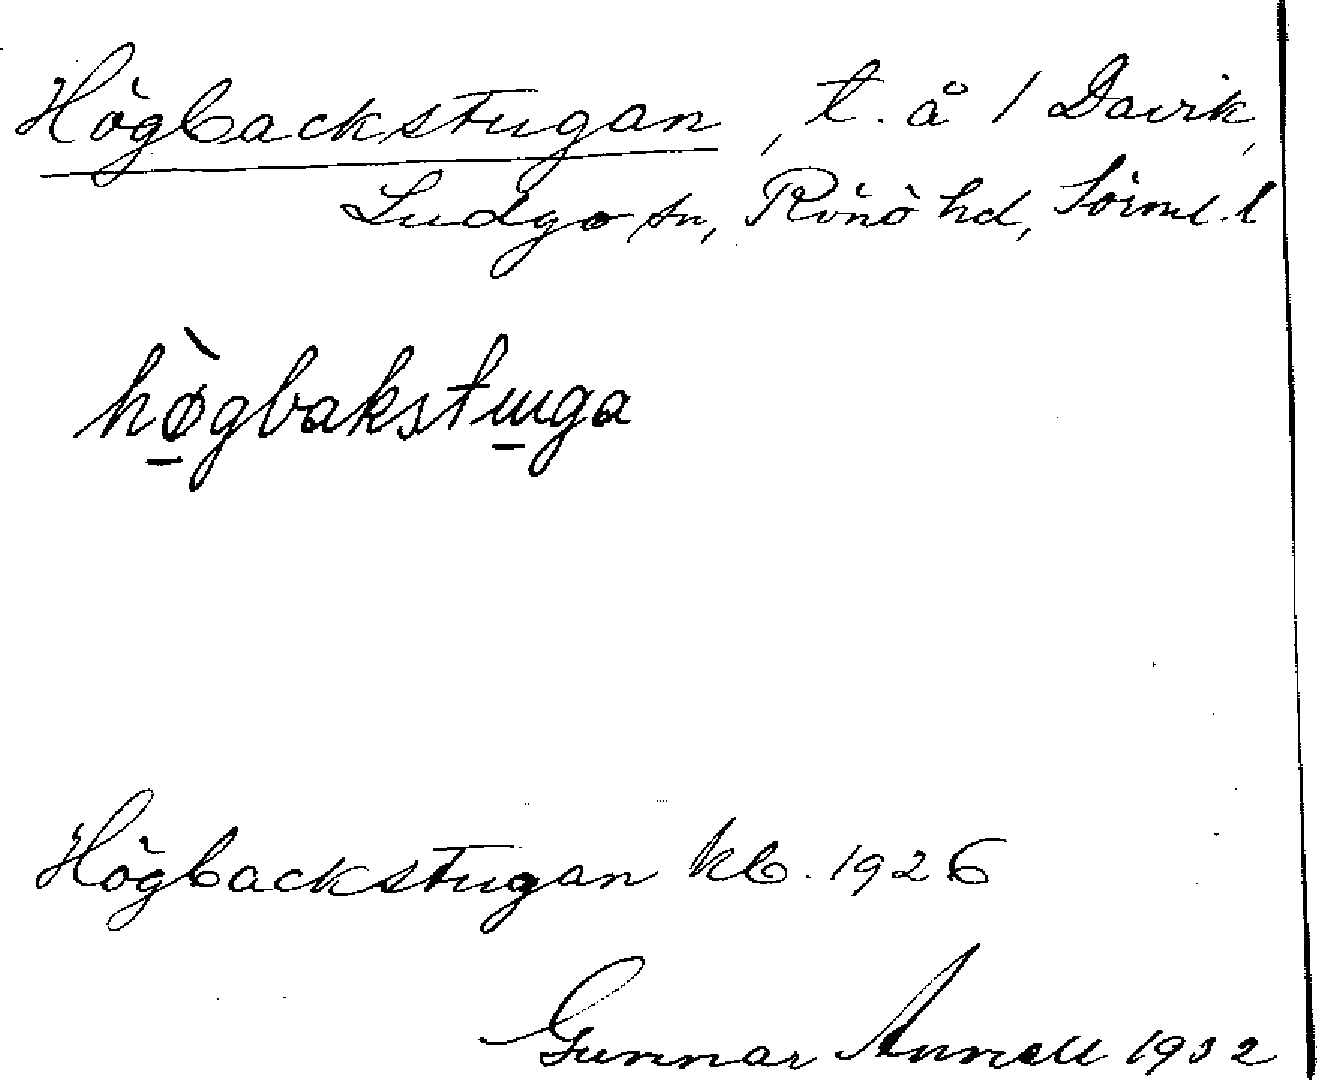 Högbackstugan, t. å 1 Davik,
Ludgo sn, Rönö hd, Sörml. l
hø̀gbakstuga
Högbackstugan kb. 1926
Gunnar Annell 1932